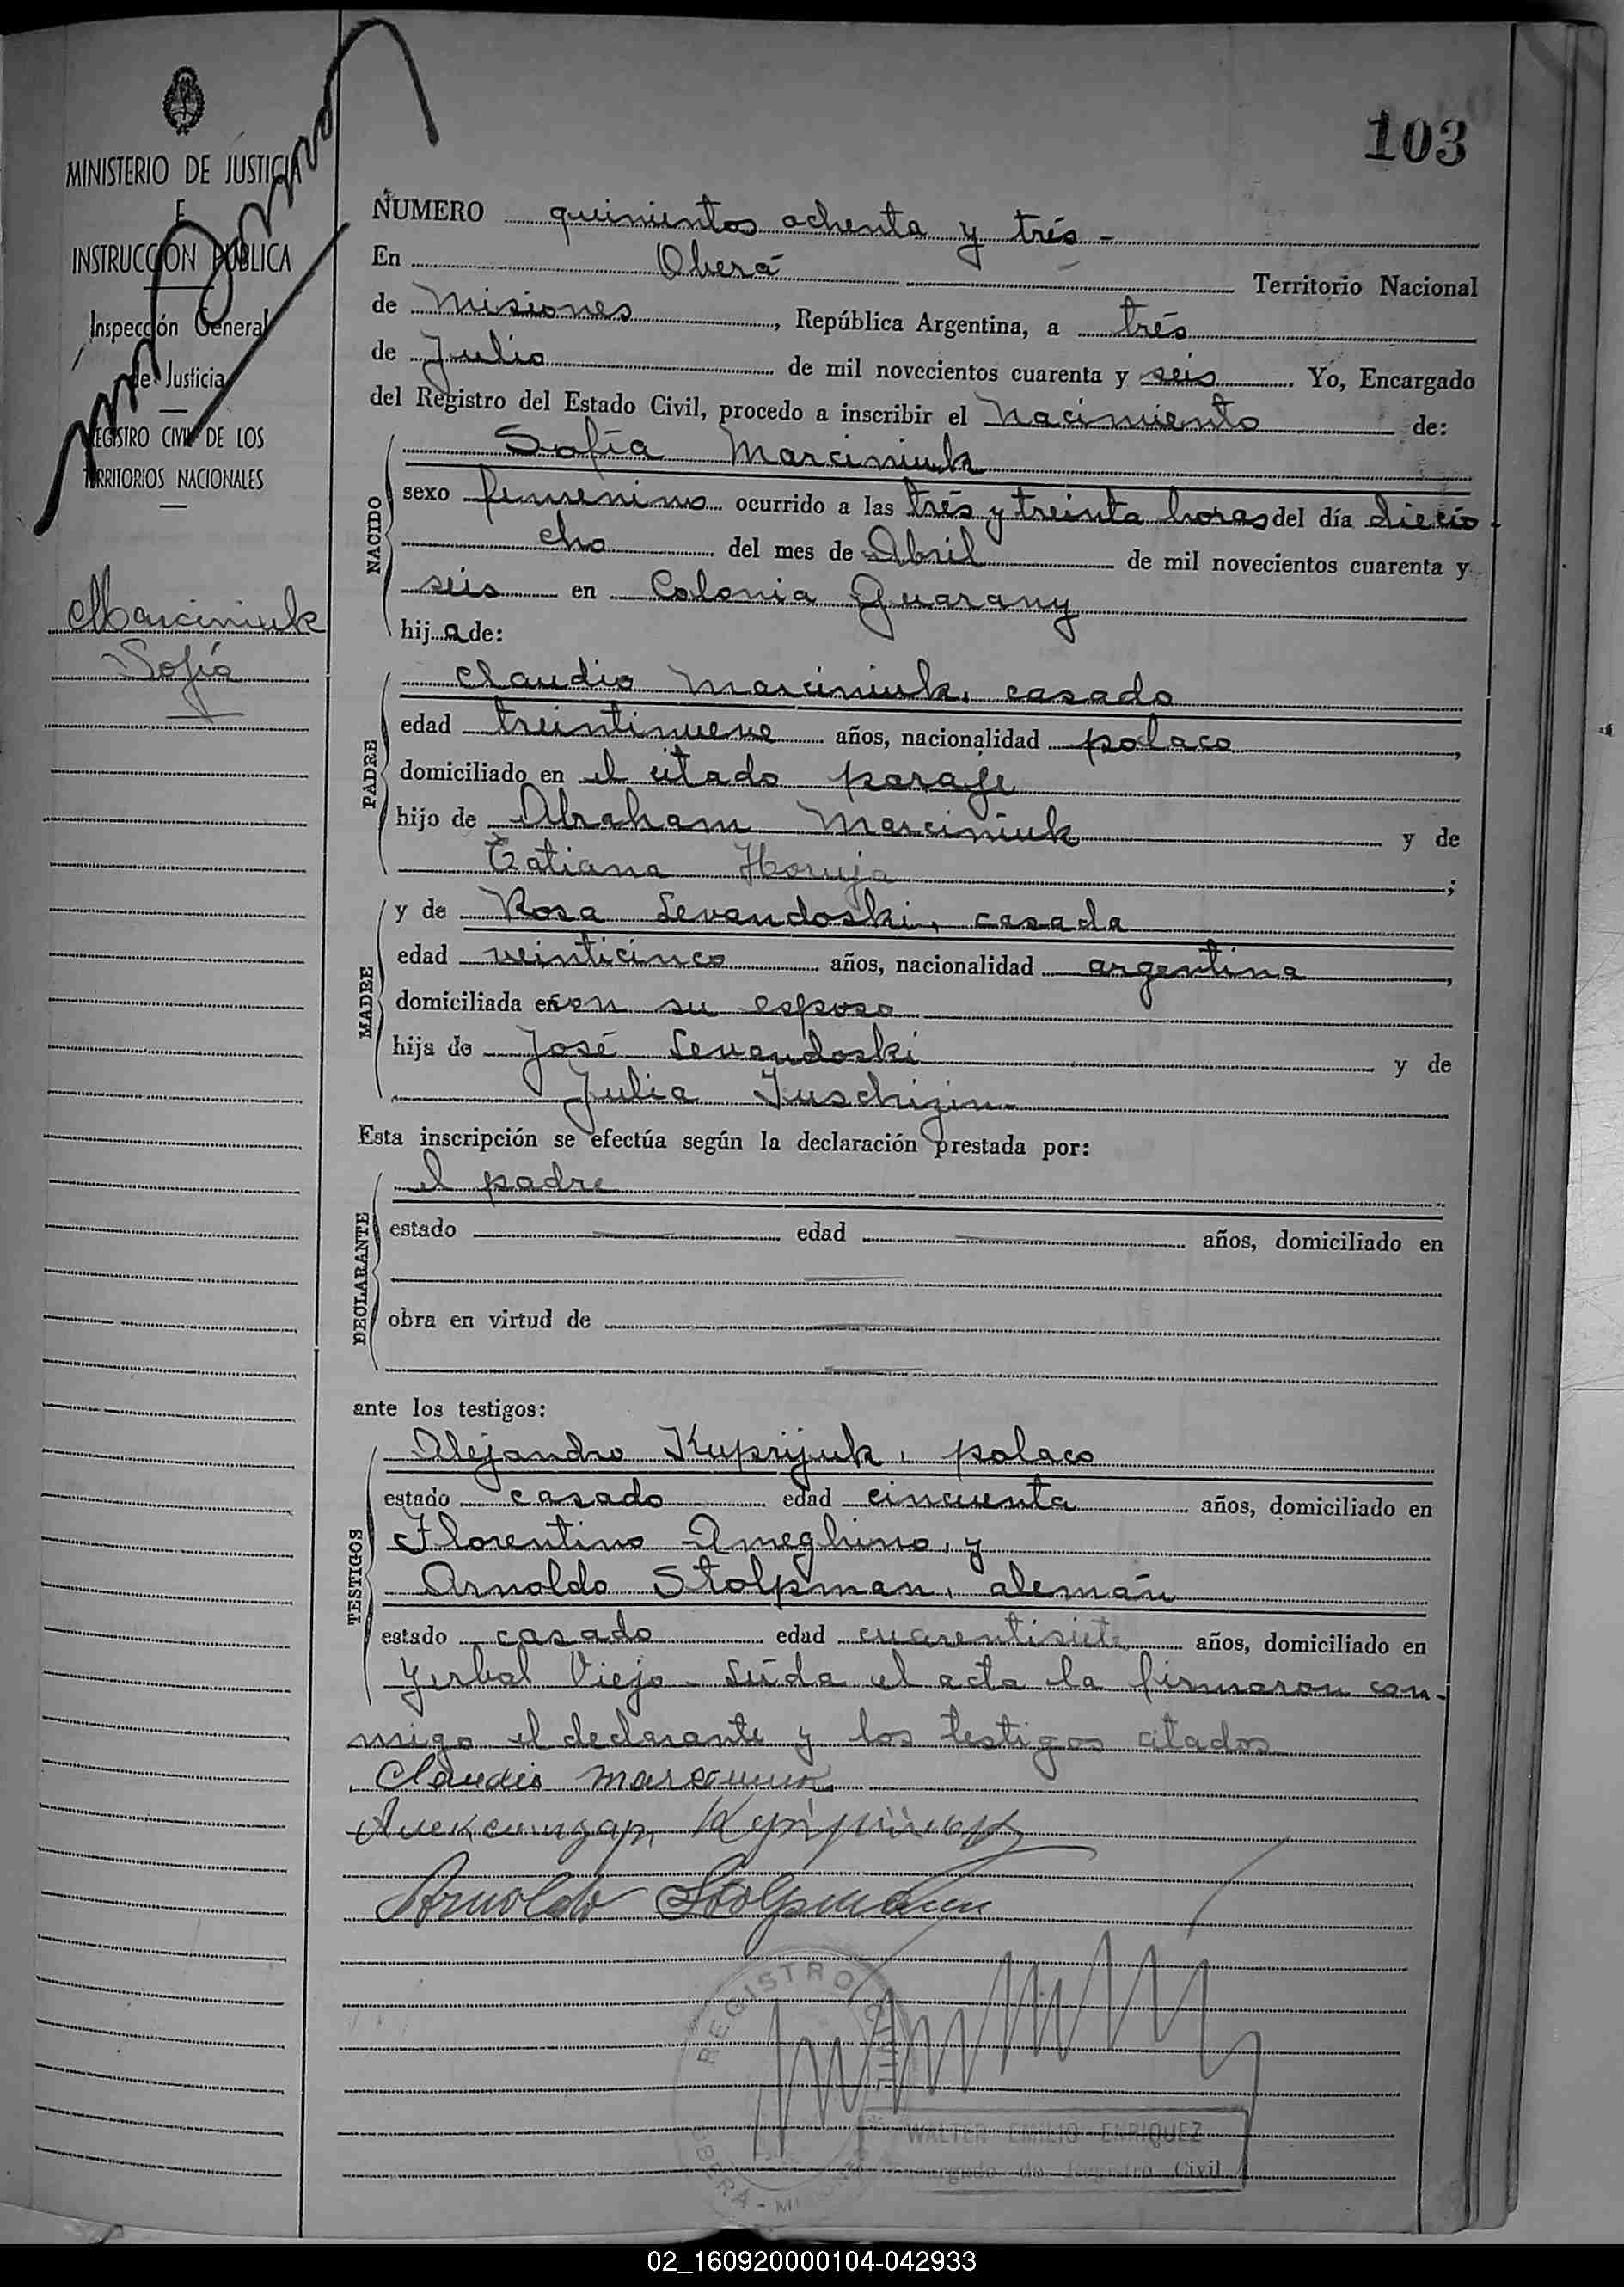 103
MINISTERIO DE JUSTICIA
E
INSTRUCCIÓN PÚBLICA
Inspección General
de Justicia
REGISTRO CIVIL DE LOS
TERRITORIOS NACIONALES
Marciniuk
Sofía
NUMERO quinientos ochenta y trés -
En Oberá Territorio Nacional
de Misiones, República Argentina, a trés
de Julio de mil novecientos cuarenta y seis. Yo, Encargado
del Registro del Estado Civil, procedo a inscribir el nacimiento de:
NACIDO
Sofía Marciniuk
sexo femenino ocurrido a las trés y treinta horas del día diecio-
cho del mes de Abril de mil novecientos cuarenta y
seis en Colonia Guarany
hija de:
PADRE
Claudio Marciniuk, casado
edad treintinueve años, nacionalidad polaco,
domiciliado en el citado paraje
hijo de Abraham Marciniuk y de
Tatiana Horuja;
MADRE
y de Rosa Levandoski, casada
edad veinticinco años, nacionalidad argentina,
domiciliada en con su esposo
hija de José Levandoski y de
Julia Juschizin
Esta inscripción se efectúa según la declaración prestada por:
DECLARANTE
el padre
estado edad años, domiciliado en
obra en virtud de
ante los testigos:
TESTIGOS
Alejandro Kuprijuk, polaco
estado casado edad cincuenta años, domiciliado en
Florentino Ameghino, y
Arnoldo Stolpman, alemán
estado casado edad cuarentisiete años, domiciliado en
Yerbal Viejo - Leída el acta la firmaron con-
migo el declarante y los testigos citados
Claudio
Arnoldo Stolpmann
REGISTRO CIVIL
OBERÁ - MISIONES
WALTER EMILIO ENRIQUEZ
Encargado de Registro Civil
02_160920000104-042933